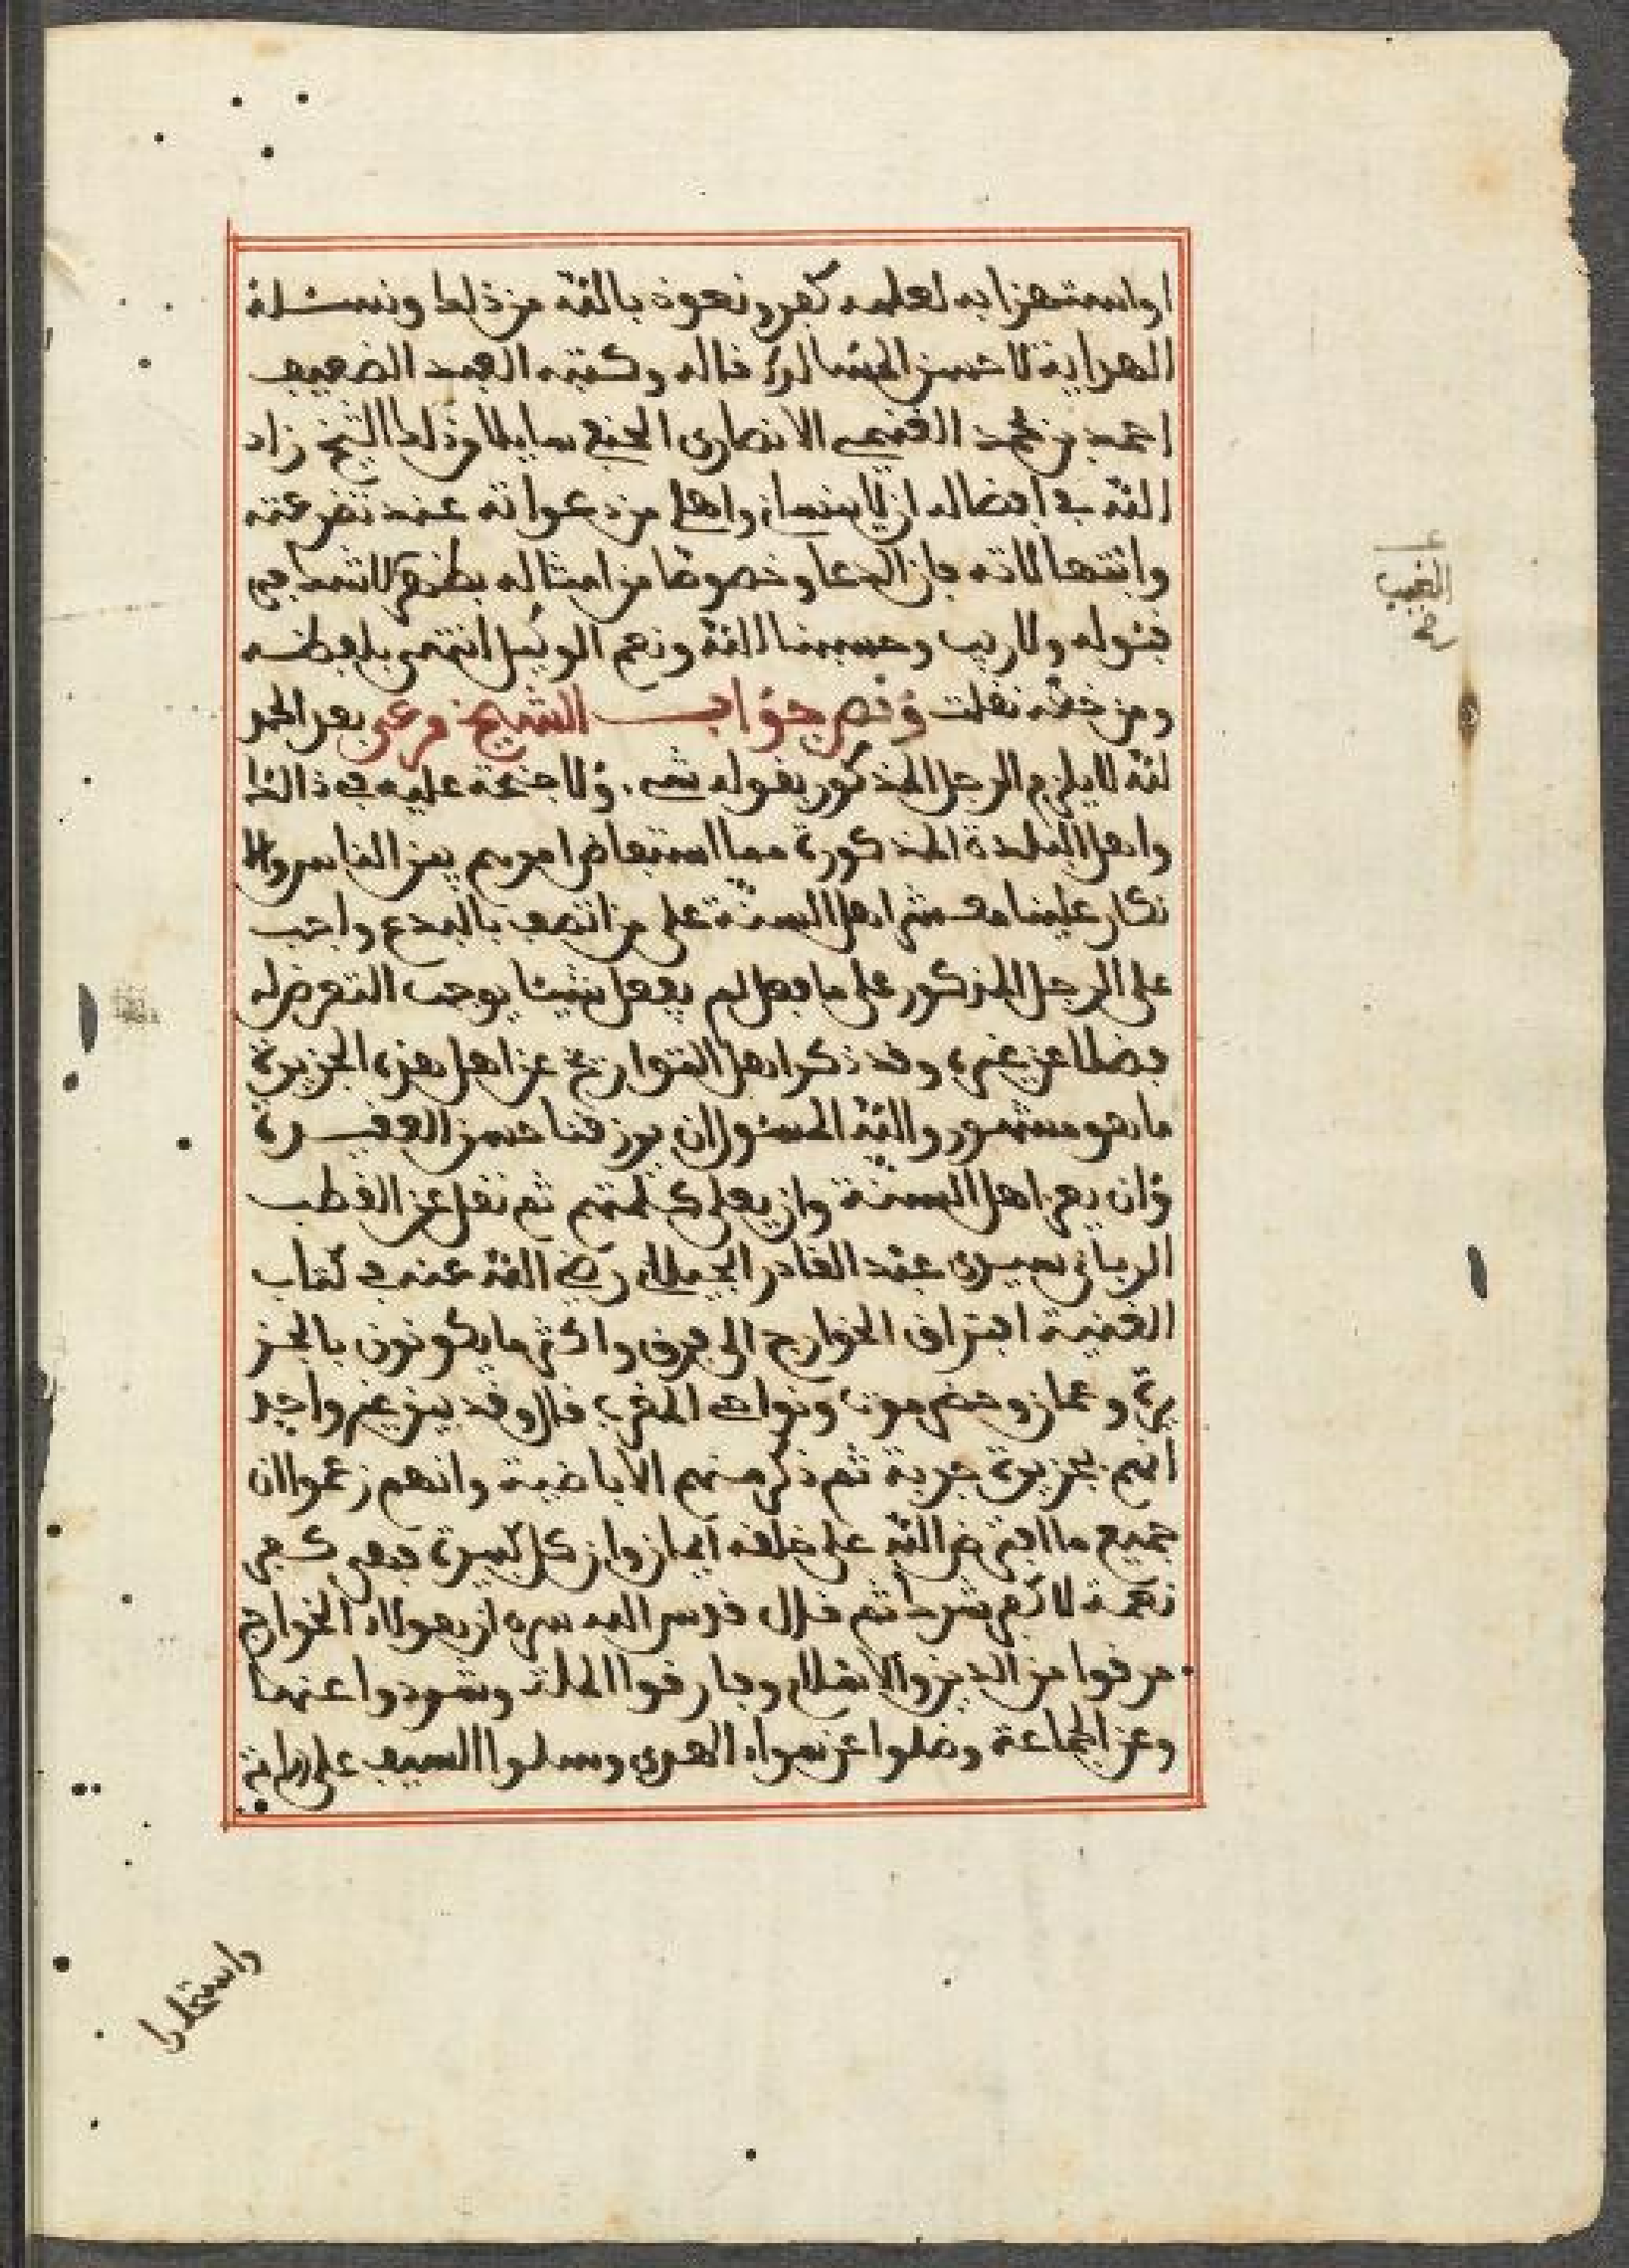 او استهزا به لعلمه كفر ونعوذ بالله من ذلك ونسئله
الهداية لاحسن المسالك قاله وكتبه العبد الضعيف
احمد بن محمد الانصارى الحنفى سايلا من ذلك الشيخ زاد
الله فى افضاله ان لا ينسانى واهلى من دعواته عند تضرعته
وابتهالاته فان الدعا وخصوصا من امثاله بظهر لاشك فى
قبوله ولا ريب وحسبنا الله ونعم الوكيل انتهى بلفظه
ومن خطه نقلت ونص جواب الشيخ مرعى بعد الحمد
لله لا يلزم الرجل المذكور بقوله شىء ولا جنحة عليه فى ذالك
واهل البلدة المذكورة مما استفاض امرهم بين الناس والا
نكار علينا معشر اهل السنة على من اتصف بالبدع واجب
على الرجل المذكور على ما فعل لم يفعل شيئا يوجب التعرض له
فضلا عن غيره وقد ذكر اهل التواريخ عن اهل هذه الجزيرة
ما هو مشهور والله المسئول ان يرزقنا حسن العقيدة
وان يعز اهل السنة وان يعلى كلمتهم ثم نقل عن القطب
الربانى سيدى عبد القادر الجيلانى رضى الله عنه فى كتاب
الغنية افتراق الخوارج الى فرق واكثر ما يكونون بالجز
يرة وعمان وحضرموت ونواحى المغرب قال وقد بين غير واحد
انهم بجزيرة جربة ثم ذكر منهم الاباضية وانهم زعموا ان
جميع ما افترض الله على خلقه ايمان وان كل كبيرة فهى كفر
نعمة لا كفر شرك ثم قال قدس الله سره ان هولاء الخوارج
مرقوا من الدين والاسلام وفارقوا الملة وشردوا عنها
وعن الجماعة وضلوا عن سواء الهدى وسلوا السيف على الاىمة
الغيب
صح
واستحلوا